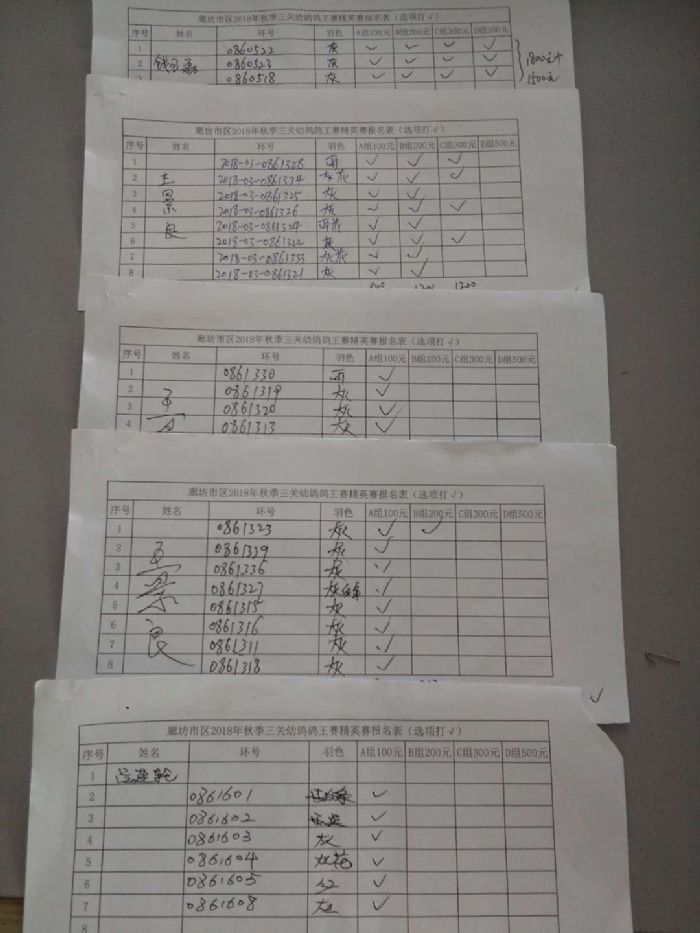 廊坊市区2018年秋季三关幼鸽鸽王赛精英赛报名表（选项打√）
序号 姓名 环号 羽色 A组100元 B组200元 C组300元 D组500元
1 0860522 灰 ✓ ✓ ✓ ✓
2 0860523 灰 ✓ ✓ ✓ ✓
3 0860518 灰 ✓ ✓ ✓ ✓
廊坊市区2018年秋季三关幼鸽鸽王赛精英赛报名表（选项打√）
序号 姓名 环号 羽色 A组100元 B组200元 C组300元 D组500元
1 2018-03-0861328 雨 ✓ ✓ ✓
2 王 2018-03-0861334 灰花 ✓ ✓ ✓
3 景 2018-03-0861325 灰 ✓ ✓
4 2018-03-0861326 灰 ✓ ✓ ✓
5 良 2018-03-0861324 雨花 ✓ ✓
6 2018-03-0861322 灰 ✓ ✓ ✓
7 2018-03-0861333 灰花 ✓ ✓
8 2018-03-0861321 灰 ✓ ✓
廊坊市区2018年秋季三关幼鸽鸽王赛精英赛报名表（选项打√）
序号 姓名 环号 羽色 A组100元 B组200元 C组300元 D组500元
1 0861330 雨 ✓
2 0861319 灰 ✓
3 0861320 灰 ✓
4 0861313 灰 ✓
廊坊市区2018年秋季三关幼鸽鸽王赛精英赛报名表（选项打√）
序号 姓名 环号 羽色 A组100元 B组200元 C组300元 D组500元
1 0861323 灰 ✓ ✓
2 王 0861339 灰 ✓
3 景 0861336 灰 ✓
4 0861327 ✓
5 0861315 灰 ✓
6 良 0861316 灰 ✓
7 0861311 灰 ✓
8 0861318 灰 ✓
廊坊市区2018年秋季三关幼鸽鸽王赛精英赛报名表（选项打√）
序号 姓名 环号 羽色 A组100元 B组200元 C组300元 D组500元
1
2 0861601 ✓
3 0861602 ✓
4 0861603 灰 ✓
5 0861604 灰花 ✓
6 0861605 红 ✓
7 0861608 灰 ✓
8